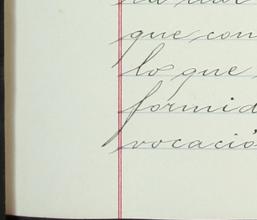 que con
lo que
formid
vocació